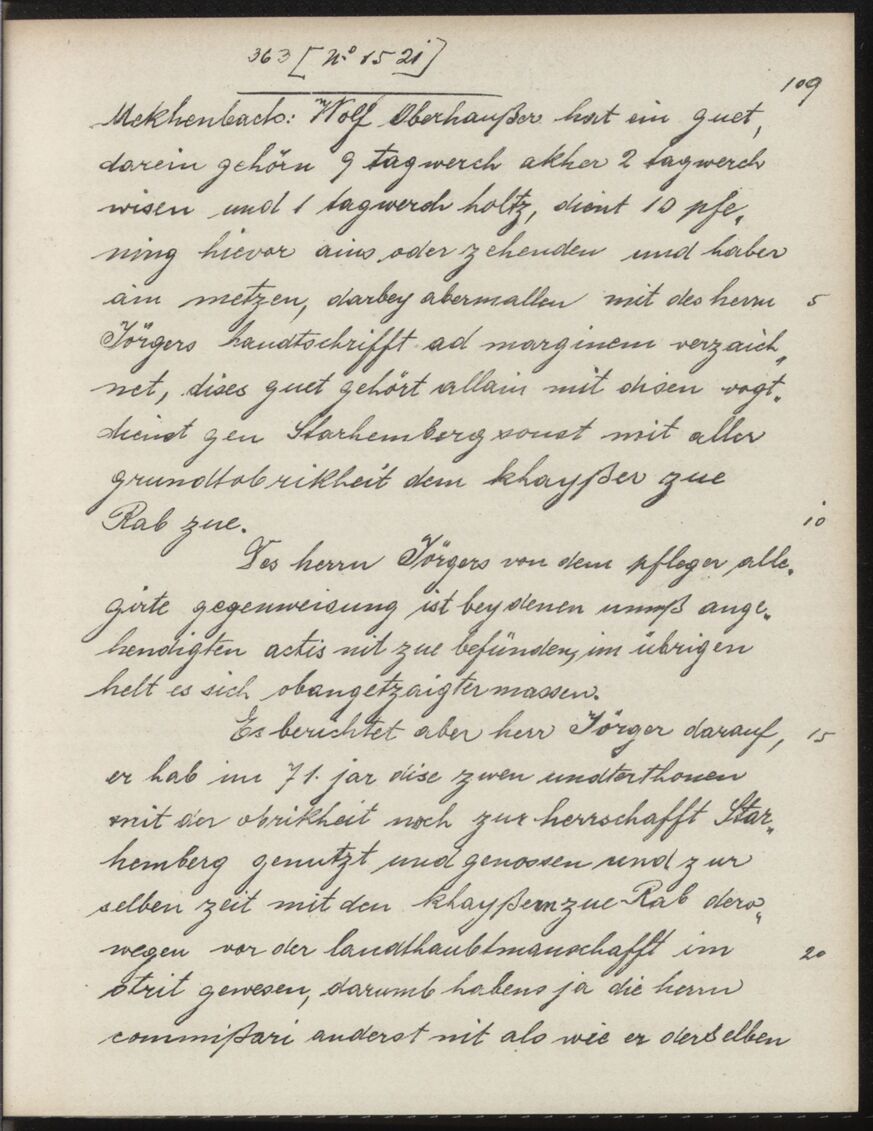 363 [N° 1521]
109
Mekhenbach: Wolf Oberhaußer hat ein guet,
darein gehörn 9 tagwerch akher 2 tagwerch
wisen und 1 tagwerch holtz, dient 10 pfe„
ning hievor ains oder zehenden und haber
ain metzen, darbey abermallen mit des herrn 5
Jörgers handtschrifft ad marginem verzaich„
net, dises guet gehört allain mit disen vogt„
dienst gen Starhemberg sonst mit aller
grundtobrikheit dem khayßer zue
Rab zue. 10
Des herrn Jörgers von dem pfleger alle„
girte gegenweisung ist bey denen unnß ange„
hendigten actis nit zue befünden, im übrigen
helt es sich obangetzaigtermassen.
Es berichtet aber herr Jörger darauf, 15
er hab im 71. jar dise zwen undterthonen
mit der obrikheit noch zur herrschafft Star„
hemberg genutzt und genossen und zur
selben zeit mit den khayßern zue Rab dero„
wegen vor der landthaubtmanschafft im 20
strit gewesen, darumb habens ja die herrn
commißari anderst nit als wie er derselben